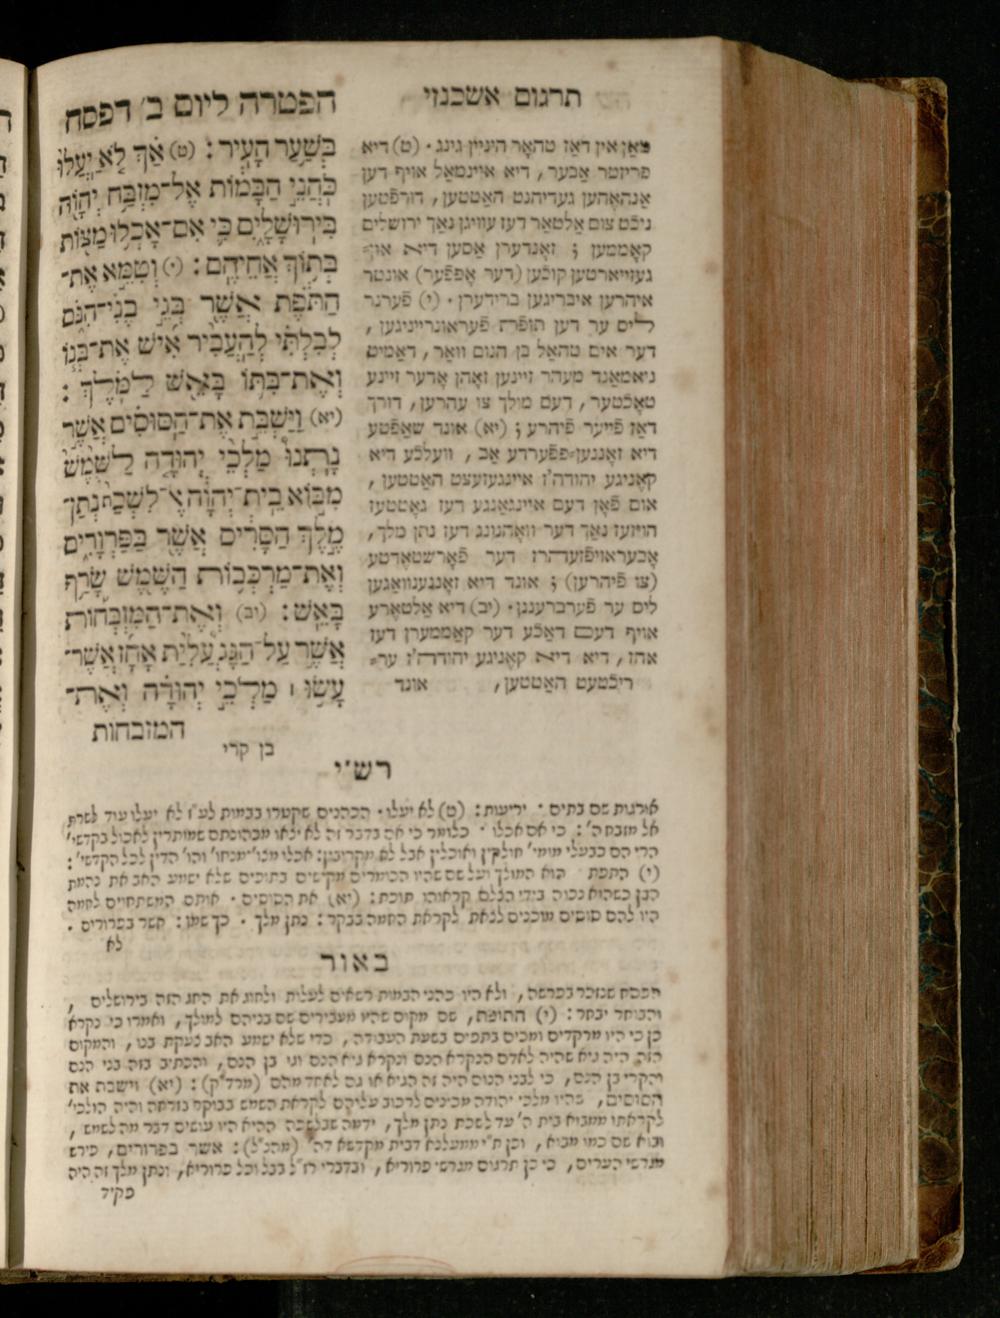 הפטרה ליום ב׳ דפסח
בְּשַׁעַר הָעִיר: (ט) אַךְ לֹא יַעֲלוּ
כֹּהֲנֵי הַבָּמוֹת אֶל־מִזְבַּח יְהֹוָה
בִּירוּשָׁלִָם כִּי אִם־אָכְלוּ מַצּוֹת
בְּתוֹךְ אֲחֵיהֶם: (י) וְטִמֵּא אֶת־
הַתֹּפֶת אֲשֶׁר בְּגֵי בְנֵי־הִנֹּם
לְבִלְתִּי לְהַעֲבִיר אִישׁ אֶת־בְּנוֹ
וְאֶת־בִּתּוֹ בָּאֵשׁ לַמֹּלֶךְ:
(יא) וַיַּשְׁבֵּת אֶת־הַסּוּסִים אֲשֶׁר
נָתְנוּ מַלְכֵי יְהוּדָה לַשֶּׁמֶשׁ
מִבּוֹא בֵית־יְהֹוָה אֶל־לִשְׁכַּת נְתַן־
מֶלֶךְ הַסָּרִים אֲשֶׁר בַּפַּרְוָרִים
וְאֶת־מַרְכְּבוֹת הַשֶּׁמֶשׁ שָׂרַף
בָּאֵשׁ: (יב) וְאֶת־הַמִּזְבְּחוֹת
אֲשֶׁר עַל־הַגָּג עֲלִיַּת אָחָז אֲשֶׁר־
עָשׂוּ ׀ מַלְכֵי יְהוּדָה וְאֶת־
המזבחות
בן קרי
תרגום אשכנזי
מאן אין דאז טהאר היניין גינג. (ט) דיא
פריזטר אבער, דיא איינמאל אויף דען
אנהאהען געדיהנט האטטען, דורפֿטען
ניכֿט צום אלטאר דעז עוויגן נאך ירושלים
קאממען; זאנדערן אסען דיא אונ־
געזייארטען קוכֿען (דער אפפֿער) אונטר
איהרען איבריגען ברידערן. (י) פֿערנר
ליס ער דען תופת פֿעראונרייניגען,
דער אים טהאל בן הנום וואר, דאמיט
ניאמאנד מעהר זיינען זאהן אדער זיינע
טאכֿטער, דעם מולך צו עהרען, דורך
דאז פֿייער פֿיהרע; (יא) אונד שאפֿטע
דיא זאננען־פפֿערדע אב, וועלכֿע דיא
קאניגע יהודה'ז איינגעזעצט האטטען,
אום פֿאן דעם איינגאנגע דעז גאטטעז
הויזעז נאך דער וואהנונג דעז נתן מלך,
אבעראויפֿזעהרז דער פֿארשטאדטע
(צו פֿיהרען); אונד דיא זאננענוואגען
ליס ער פֿערברעננן. (יב) דיא אלטארע
אויף דעם דאכֿע דער קאממערן דעז
אחז, דיא דיא קאניגע יהודה'ז ער־
ריכֿטעט האטטען, אונד
רש״י
אורגות שם בתים · יריעות: (ט) לא יעלו · הכהנים שקטרו בבמות לע״ז לא יעלו עוד לשרת
אל מזבח ה': כי אם אכלו · כלומר כי אם בדבר זה לא יצאו מכהונתם שמותרין לאכול בקדשי'
הרי הם כבעלי מומי' חולקין ואוכלין אבל לא מקריבין: אכלו מצו' מנחו' והו' הדין לכל הקדשי':
(י) התפת · הוא המולך ועל שם שהיו הכומרים מקישים בתופים שלא ישמע האב את נהמת
הבן כשהוא נכוה בידי הצלם קראוהו תופת: (יא) את הסוסים · אותם המשתחוים לחמה
היו להם סוסים מוכנים לצאת לקראת החמה בבקר: נתן מלך · כך שמו: אשר בפרורים ·
לא
באור
הפסח שנזכר בפרשה, ולא היו כהני הבמות רשאים לעלות ולחוג את החג הזה בירושלים,
והבוחר יבחר: (י) התופת, שם מקום שהיו מעבירים שם בניהם למולך, ואמרו כי נקרא
כן כי היו מרקדים ומכים בתפים בשעת העבודה, כדי שלא ישמע האב צעקת בנו, והמקום
הזה היה גיא שהיה לאדם הנקרא הנם ונקרא גיא הנם וגי בן הנם, והכתיב בזה בני הנם
והקרי בן הנם, כי לבני הנום היה זה הגיא או גם לאחד מהם (מרד״ק): (יא) וישבת את
הסוסים, שהיו מלכי יהודה מכינים לרכוב עליהם לקראת השמש בבוקר בזרחה והיה הולכי'
לקראתו ממבוא בית ה' עד לשכת נתן מלך, ידמה שבלשכה ההיא היו עושים דבר מה לשמש,
ובוא שם כמו מבוא, וכן ת״י ממעלנא דבית מקדשא דה' (מהנ״ל): אשר בפרורים, פירש
מגרשי הערים, כי כן תרגום מגרשי פרוריא, ובדברי רז״ל בבל וכל פרוריא, ונתן מלך זה היה
פקיד